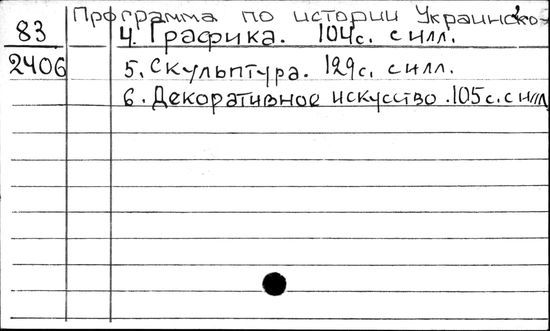 Программа по истории Украинско-
2
83
4. Графика. 104с. с илл.
2406
5. Скульптура. 129с. с илл.
6. Декоративное искусство. 105с. с илл